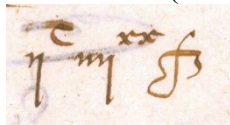 ijᶜ iiijˣˣ